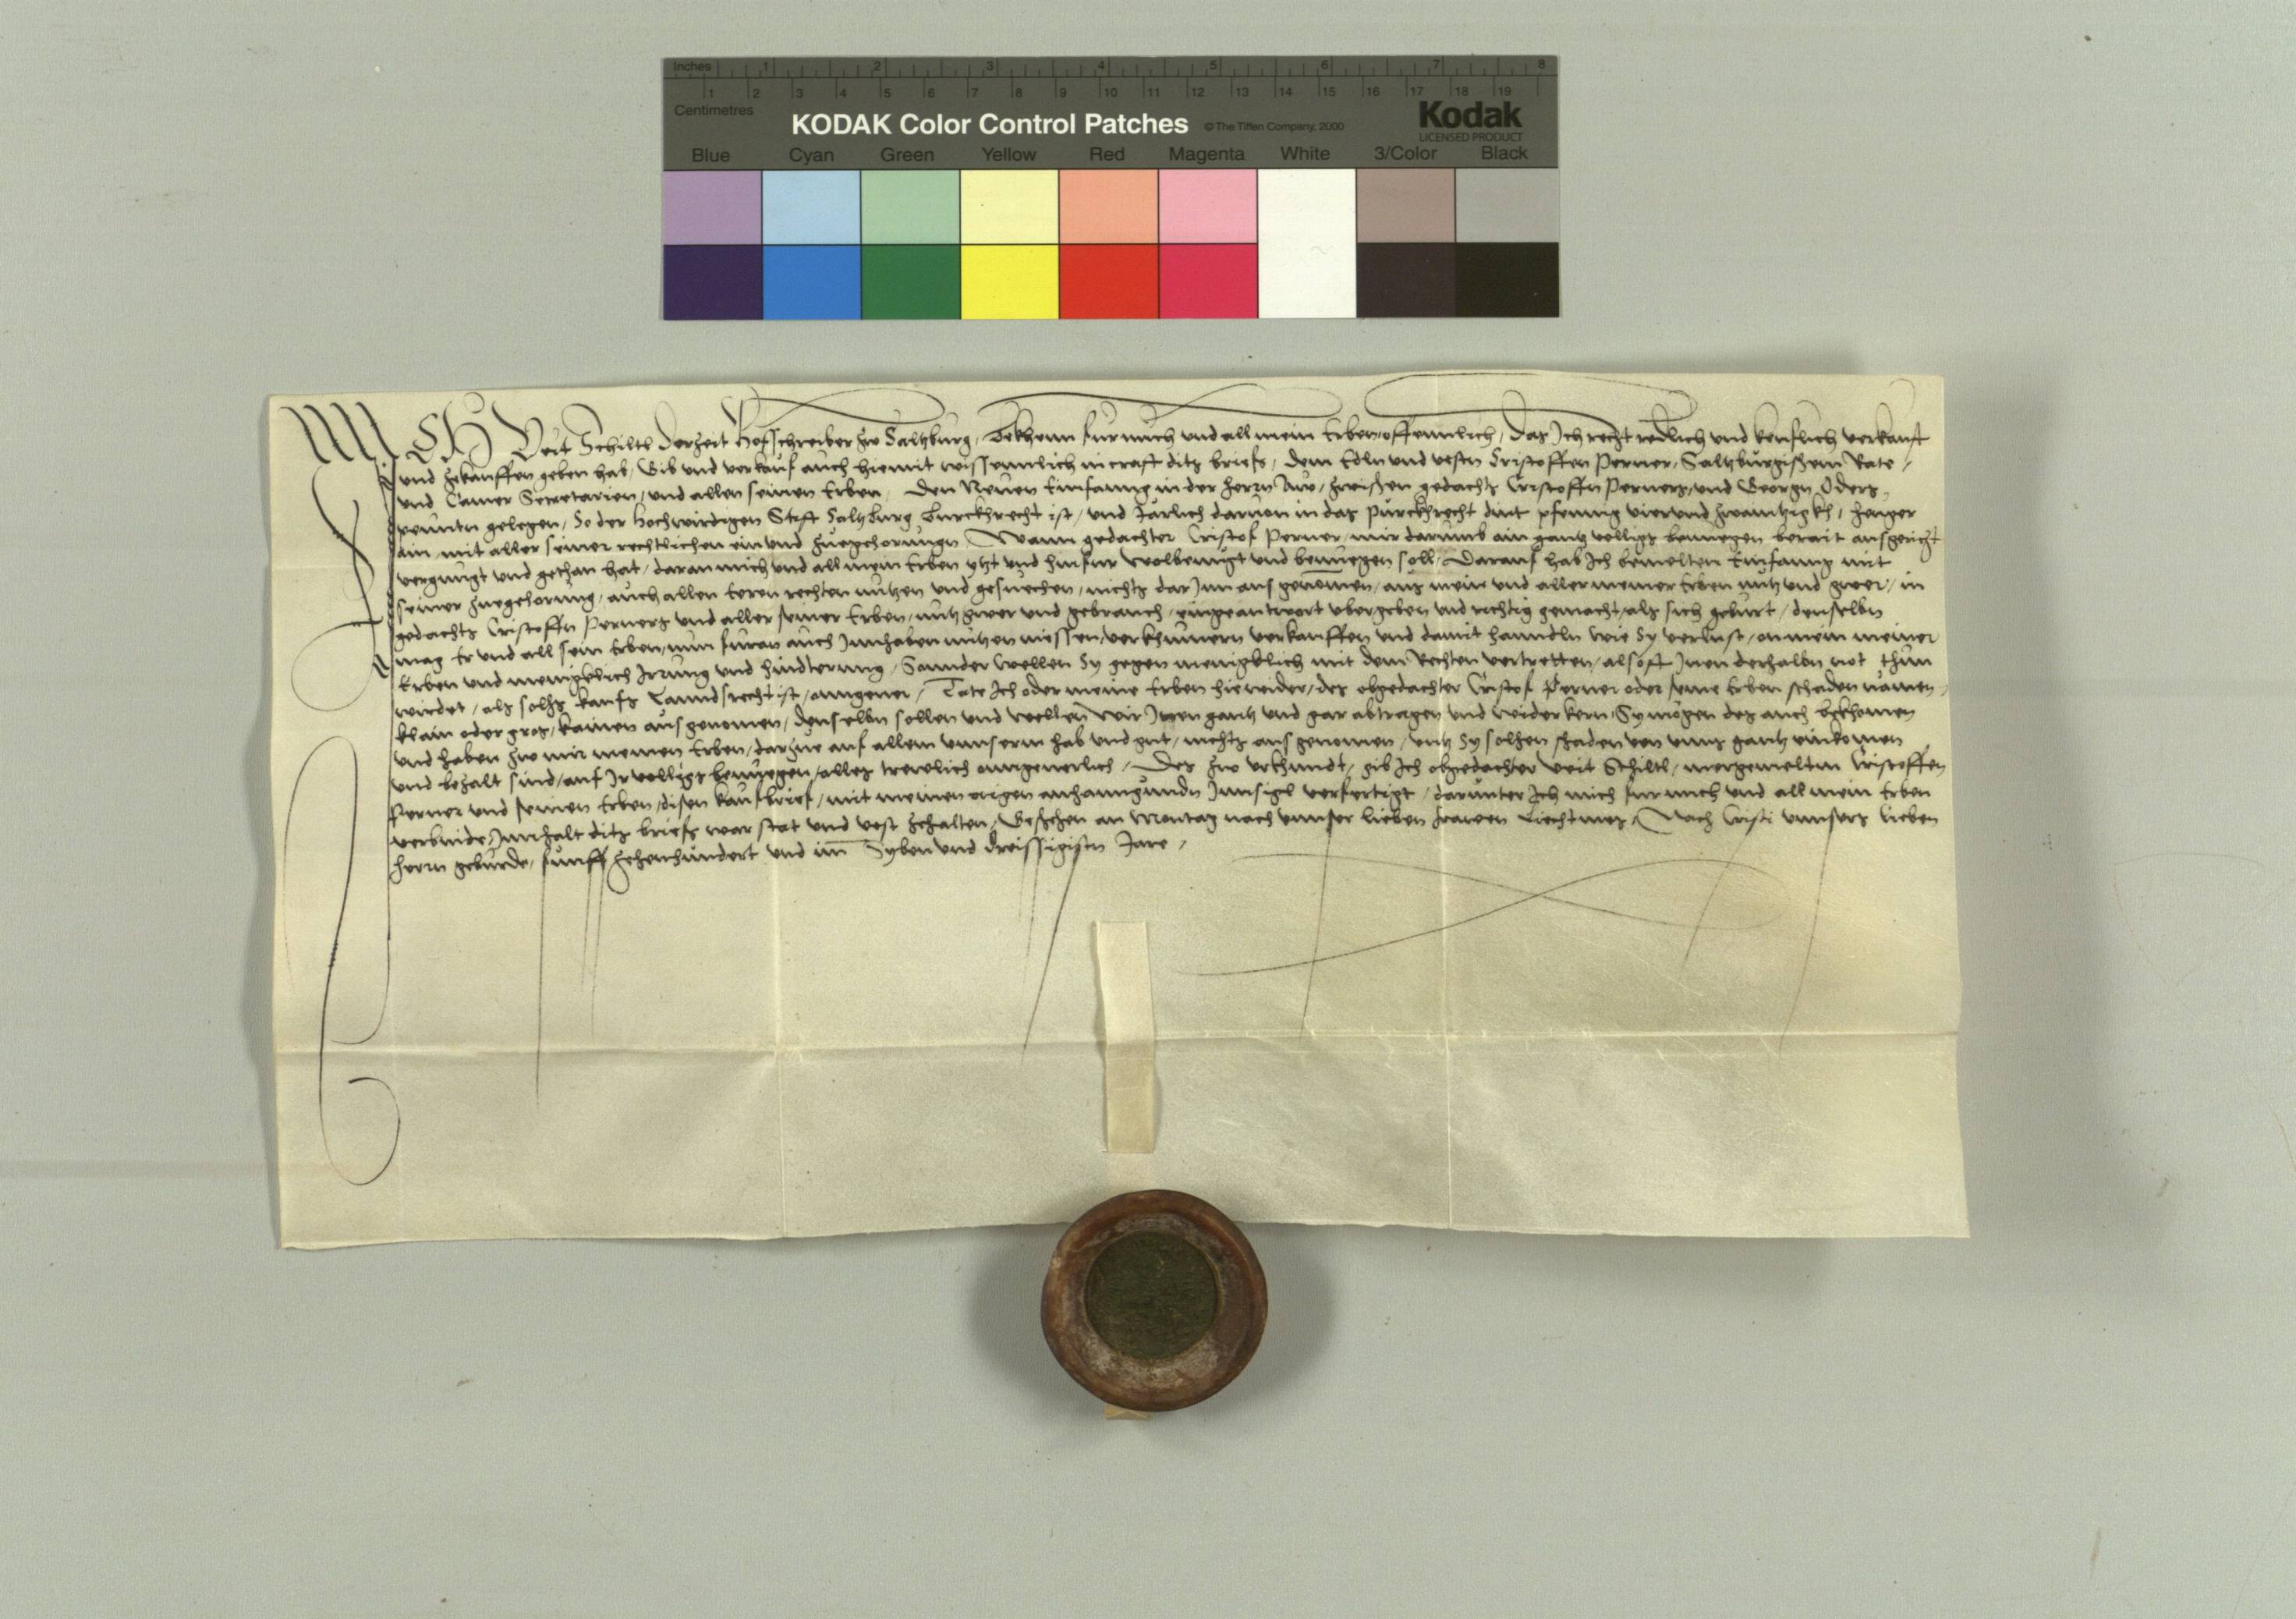 Inches 1 2 3 4 5 6 7 8
1 2 3 4 5 6 7 8 9 10 11 12 13 14 15 16 17 18 19
Centimetres
KODAK Color Control Patches © The Tiffen Company, 2000 Kodak
LICENSED PRODUCT
Blue Cyan Green Yellow Red Magenta White 3/Color Black
ICH Veit Schiltl derzeit hofschreiber zw Saltzburg, Bekhenn fur mich und all mein Erben offennlich, das Ich recht redlich und keuflich verkauft
und zekauffen geben hab, Gib und verkauf auch hiemit wissenntlich in craft ditz briefs, dem Edln und vestn Cristoffen Perner, Saltzburgischem Rate,
und Camer Secretarien, und allen seinen Erben, Den Newen Einfanng in der herrn Aw, zwischen gedachts Cristoffn Perners, und Georgn Oders,
gelegen, So der hochwirdigen Stift Saltzburg Purckhrecht ist, und Järlich daruon in das Purckhrecht dint pfennig vierundzwaintzigkh,
ain, mit aller seiner rechtlichen ein und zuegehorungn, Wann gedachter Cristof Perner, mir darumb ain gantz völligs benuegen berait ausgericht
vergnügt und gethan hat, daran mich und all mein Erben ytzt und hinfur wolbenügt und benuegen soll, Darauf hab Ich bemelten Einfanng mit
seiner zuegehorung, auch allen Eeren rechten nützen und gesuechen, nichts darJnn ausgenomen, aus mein und aller meiner Erben nütz und gwer, in
gedachts Cristoffn Perners und aller seiner Erben, nütz gwer und gebrauch, eingeantwort ubergeben und richtig gemacht, als sich gebürt, denselbn
mag Er und all sein Erben, nun füran auch Jnnhaben nützen niessen, verkhümern verkauffen und damit hanndln wie Sy verlust, on mein meiner
Erben und menigklich Irrung und hindterung, Sunnder wellen Sy gegen menigklich mit dem Rechten vertretten, als oft Jnen derhalbn not thun
wirdet, als solhs kaufs Lanndsrecht ist, anngeuer, Tate Ich oder meine Erben hiewider, des obgedachter Cristof Perner oder seine Erben schaden nämen,
klain oder gros, kainen ausgenomen, denselbn sollen und wellen wir Jnen gantz und gar abtragen und widerkern, Sy mögen des auch bekhomen
und haben zw mir meinen Erben, darzue auf allem unnserm hab und gut, nichts ausgenomen, untz Sy solhen schaden von unns gantz einkomen
und bezalt sind, auf Jr völligs benuegen, alles trewlich onngeuerlich, Des zw Urkhundt, gib Ich obgedachter Veit Schiltl, mergemeltem Cristoffen
Perner und seinen Erben, disen kaufbrief, mit meinen aigen anhanngundn Jnnsigl verfertigt, darunter Ich mich fur mich und all mein Erben
verbinde, Jnnhalt ditz briefs war stat und vest zehalten, Geschehen an Montag nach unnser lieben frawen Liechtmes, Nach Cristi unnsers lieben
herrn gebürde, funffzehenhundert und im Sybenunddreissigistn Jare,